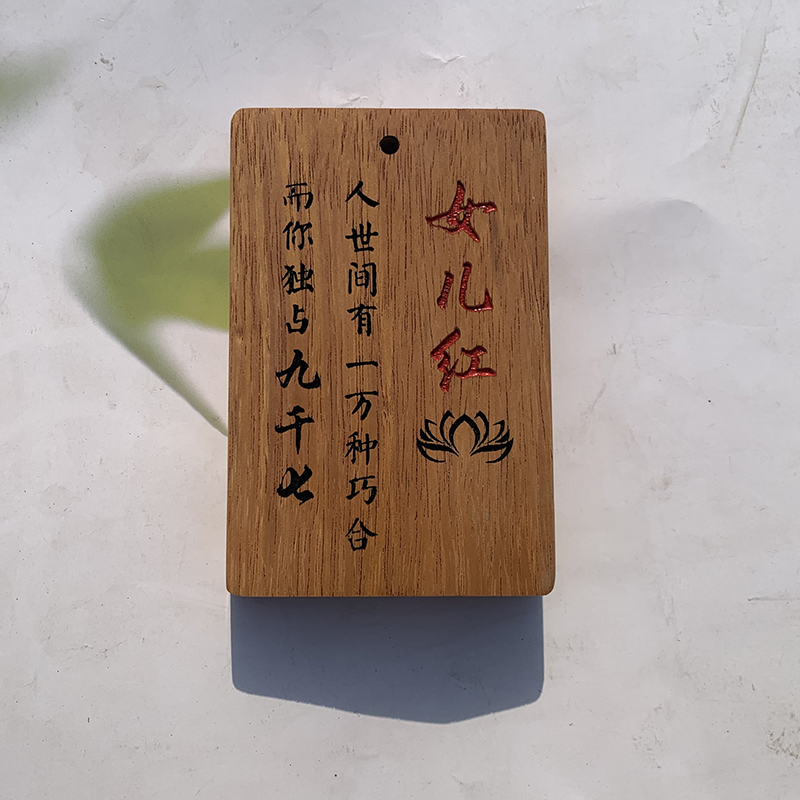 女儿红
人世间有一万种巧合
而你独占九千七